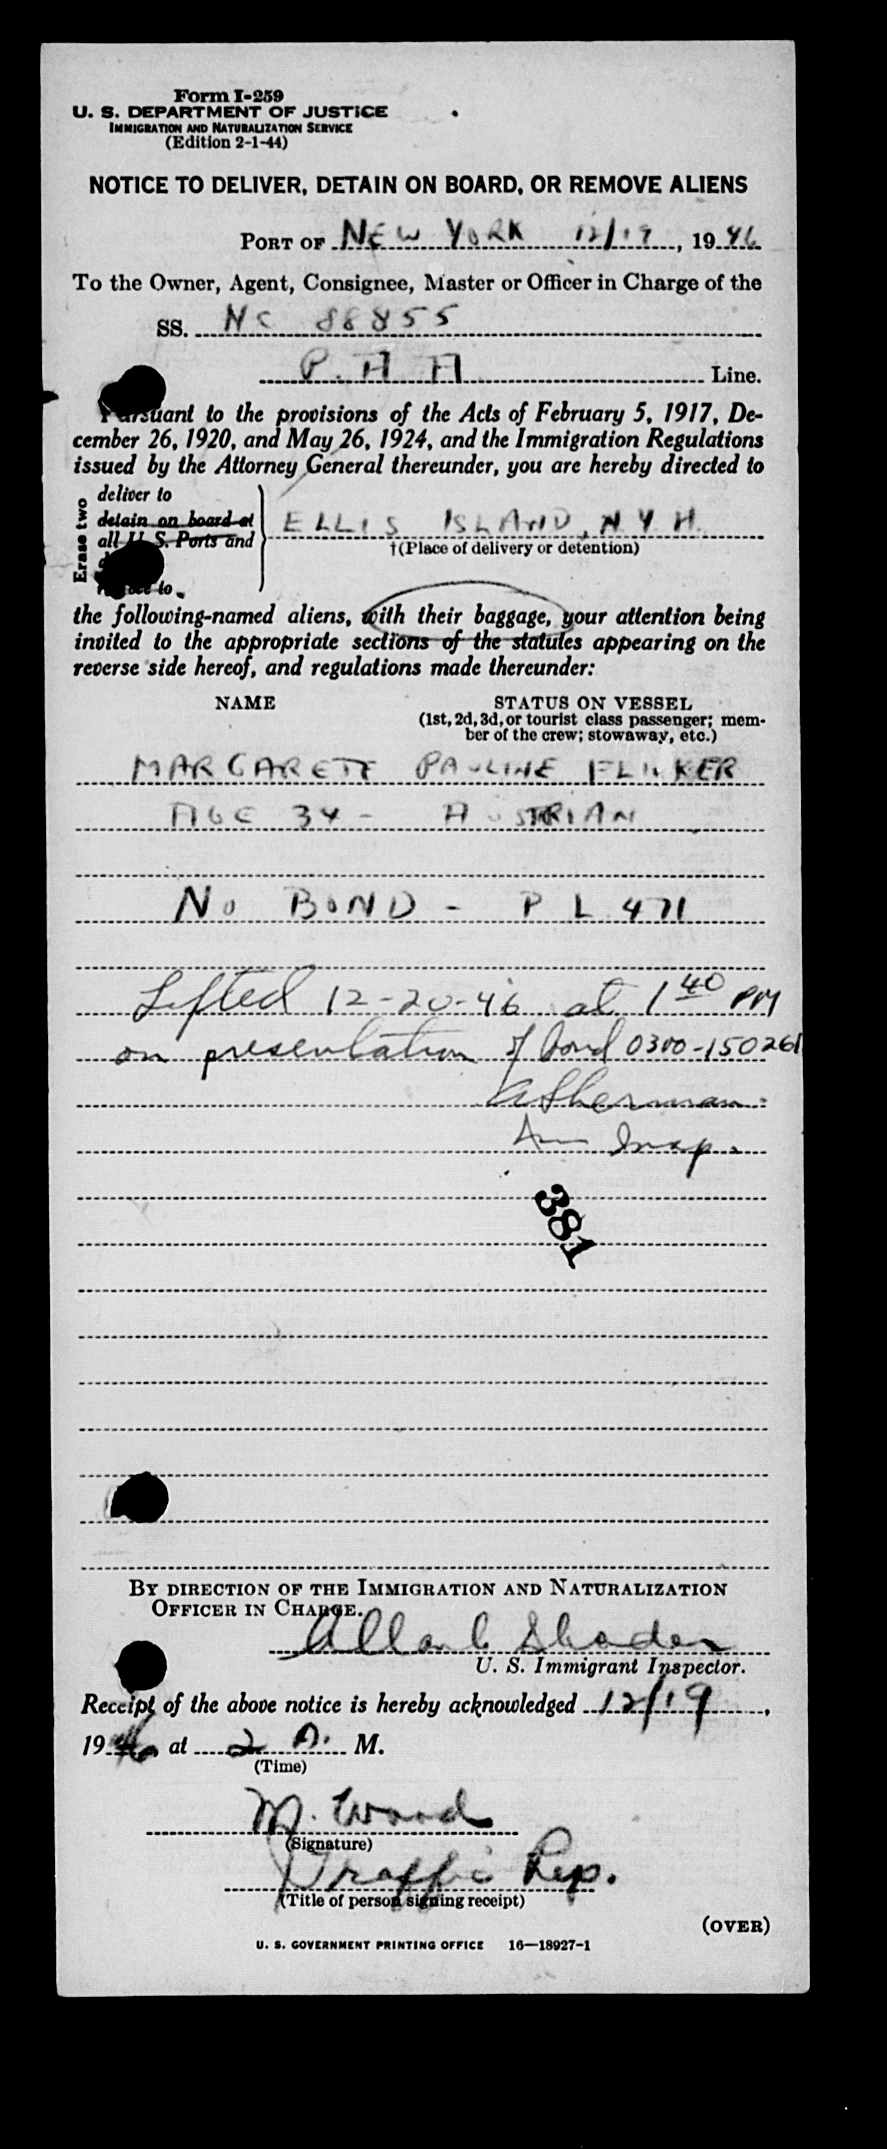 Form I-259
U. S. DEPARTMENT OF JUSTICE
IMMIGRATION AND NATURALIZATION SERVICE
(Edition 2-1-44)
NOTICE TO DELIVER, DETAIN ON BOARD, OR REMOVE ALIENS
PORT OF NEW YORK 12/19, 1946
To the Owner, Agent, Consignee, Master or Officer in Charge of the
SS. NC 88855
P. A A Line.
Pursuant to the provisions of the Acts of February 5, 1917, De-
cember 26, 1920, and May 26, 1924, and the Immigration Regulations
issued by the Attorney General thereunder, you are hereby directed to
Erase two
deliver to
detain on board at
all U. S. Ports and
to
ELLIS ISLAND, N Y H.
†(Place of delivery or detention)
the following-named aliens, with their baggage, your attention being
invited to the appropriate sections of the statutes appearing on the
reverse side hereof, and regulations made thereunder:
NAME STATUS ON VESSEL
(1st, 2d, 3d, or tourist class passenger; mem-
ber of the crew; stowaway, etc.)
MARGARETE PAULINE FLINKER
AGE 34 - AUSTRIAN
NO BOND - P L 471
Lifted 12-20-46 at 1 40 PM
on presentation of bond 0300-150261
ASherman
Imm Insp.
381
BY DIRECTION OF THE IMMIGRATION AND NATURALIZATION
OFFICER IN CHARGE.
Allan C
U. S. Immigrant Inspector.
Receipt of the above notice is hereby acknowledged 12/19,
1946 at 2 A. M.
(Time)
M. Wood
(Signature)
Traffic Rep.
(Title of person signing receipt)
(OVER)
U. S. GOVERNMENT PRINTING OFFICE 16—18927-1